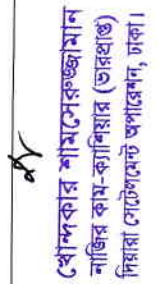 খোন্দকার শামসেরুজ্জামান
নাজির কাম-ক্যাশিয়ার (ভারপ্রাপ্ত)
দিয়ারা সেটেলমেন্ট অপারেশন, ঢাকা।